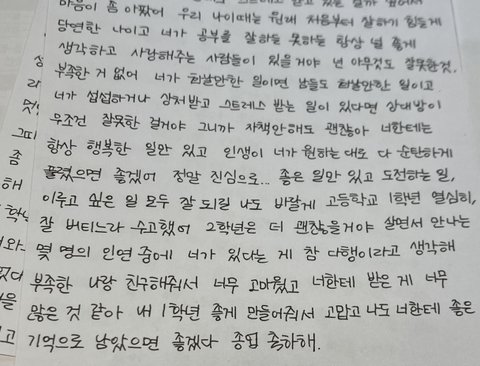 마음이 좀 아팠어 우리 나이때는 원래 처음부터 잘하기 힘든게
당연한 나이고 너가 공부를 잘하든 못하든 항상 널 좋게
생각하고 사랑해주는 사람들이 있을거야 넌 아무것도 잘못한것,
부족한 거 없어 너가 처발안한 일이면 남들도 처발안한 일이고
너가 섭섭하거나 상처받고 스트레스 받는 일이 있다면 상대방이
무조건 잘못한 걸거야 그니까 자책안해도 괜찮아 너한테는
항상 행복한 일만 있고 인생이 너가 원하는대로 다 순탄하게
풀렸으면 좋겠어 정말 진심으로... 좋은 일만 있고 도전하는 일,
이루고 싶은 일 모두 잘 되길 나도 바랄게 고등학교 1학년 열심히,
잘 버티느라 수고했어 2학년은 더 괜찮을거야 살면서 만나는
몇 명의 인연 중에 너가 있다는 게 참 다행이라고 생각해
부족한 나랑 친구해줘서 너무 고마웠고 너한테 받은 게 너무
많은 것 같아 내 1학년 좋게 만들어줘서 고맙고 나도 너한테 좋은
기억으로 남았으면 좋겠다 종업 축하해.